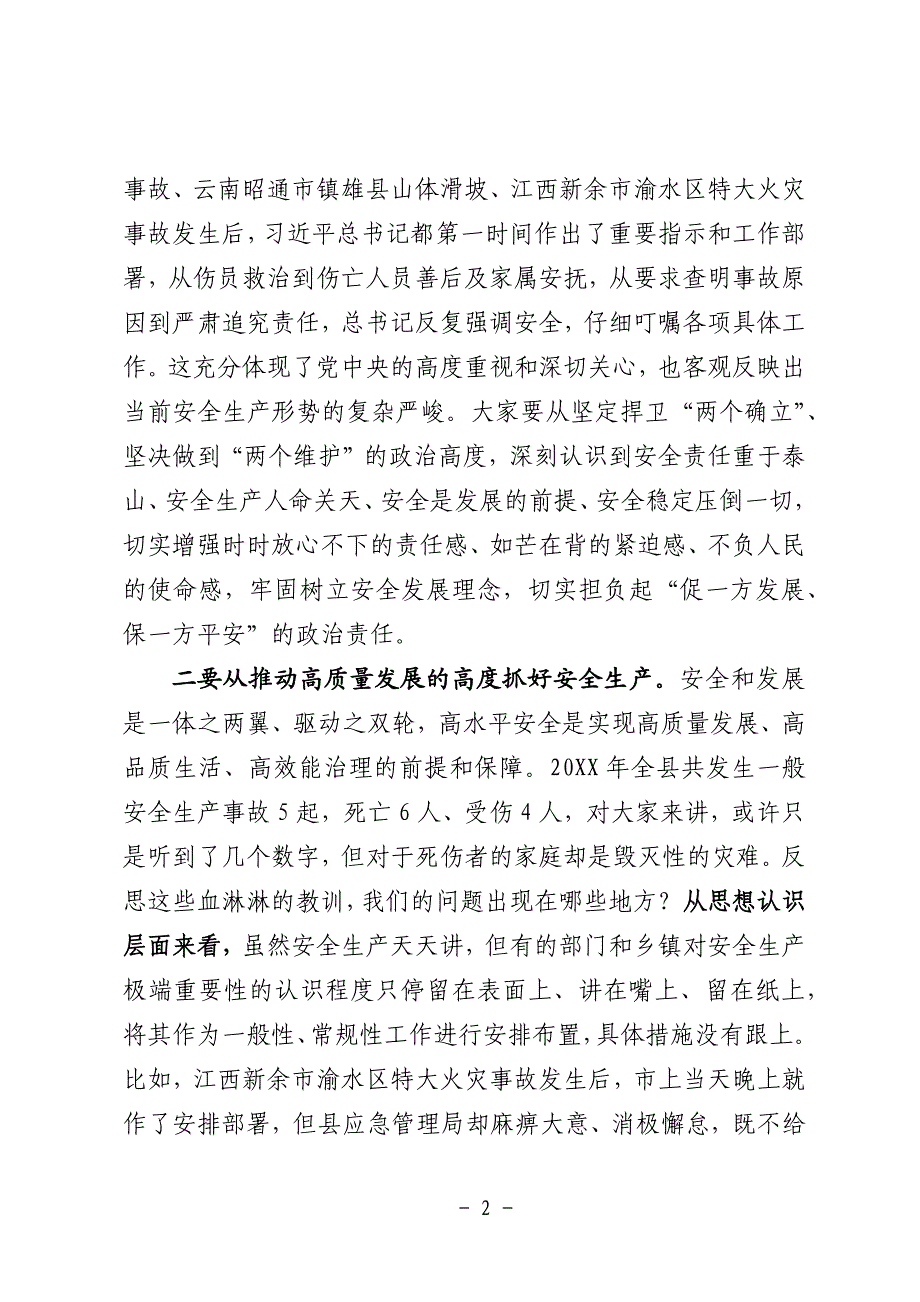 事故、云南昭通市镇雄县山体滑坡、江西新余市渝水区特大火灾
事故发生后，习近平总书记都第一时间作出了重要指示和工作部
署，从伤员救治到伤亡人员善后及家属安抚，从要求查明事故原
因到严肃追究责任，总书记反复强调安全，仔细叮嘱各项具体工
作。这充分体现了党中央的高度重视和深切关心，也客观反映出
当前安全生产形势的复杂严峻。大家要从坚定捍卫“两个确立”、
坚决做到“两个维护”的政治高度，深刻认识到安全责任重于泰
山、安全生产人命关天、安全是发展的前提、安全稳定压倒一切，
切实增强时时放心不下的责任感、如芒在背的紧迫感、不负人民
的使命感，牢固树立安全发展理念，切实担负起“促一方发展、
保一方平安”的政治责任。
二要从推动高质量发展的高度抓好安全生产。安全和发展
是一体之两翼、驱动之双轮，高水平安全是实现高质量发展、高
品质生活、高效能治理的前提和保障。20XX 年全县共发生一般
安全生产事故 5 起，死亡 6 人、受伤 4 人，对大家来讲，或许只
是听到了几个数字，但对于死伤者的家庭却是毁灭性的灾难。反
思这些血淋淋的教训，我们的问题出现在哪些地方？从思想认识
层面来看，虽然安全生产天天讲，但有的部门和乡镇对安全生产
极端重要性的认识程度只停留在表面上、讲在嘴上、留在纸上，
将其作为一般性、常规性工作进行安排布置，具体措施没有跟上。
比如，江西新余市渝水区特大火灾事故发生后，市上当天晚上就
作了安排部署，但县应急管理局却麻痹大意、消极懈怠，既不给
– 2 –